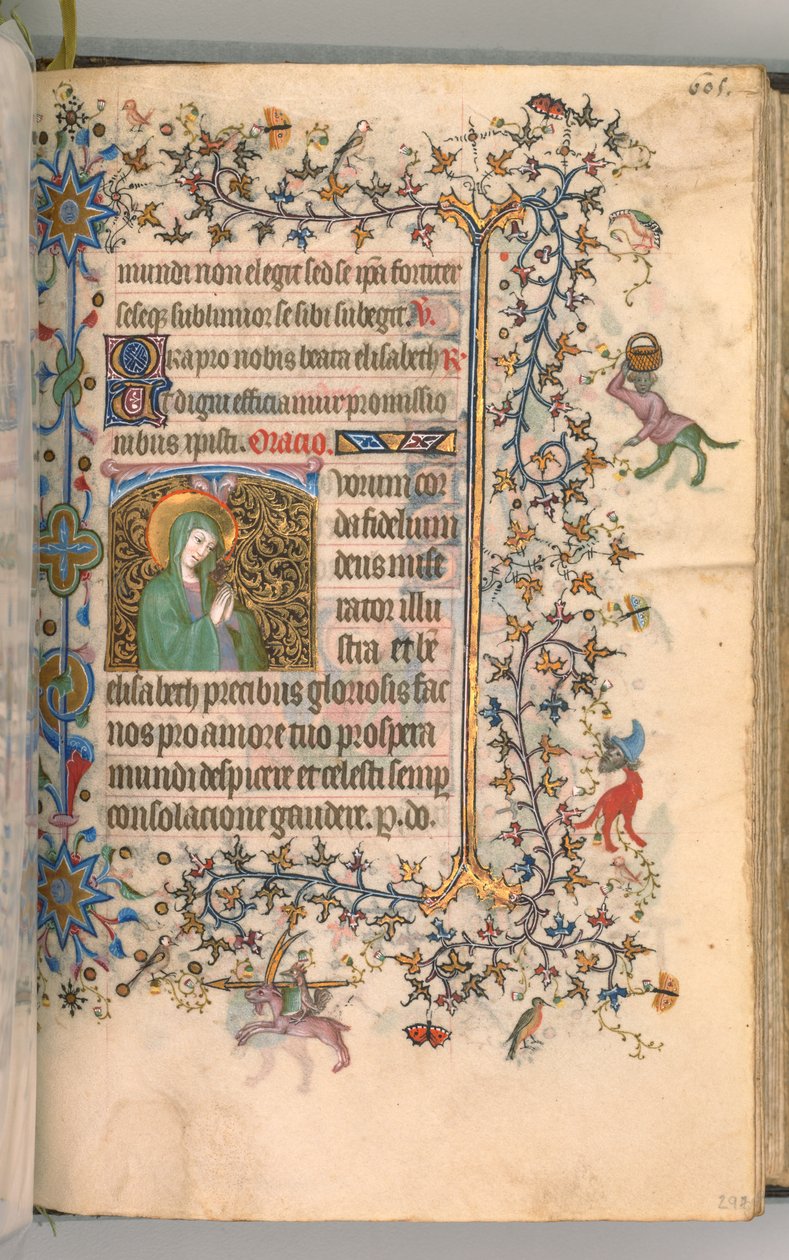 605.
mundi non elegit sed se ip̄a fortiter
seseq sublimior se sibi subegit. V̄.
Ora pro nobis beata elisabeth R̄
Ut digni efficiamur promissio
nibus xp̄isti. Oracio.
vorum cor
da fidelium
deus mise
rator illu
stra et bē
elisabeth precibus gloriosis fac
nos pro amore tuo prospera
mundi despicere et celesti semp̄
consolacione gaudere. P̱. do.